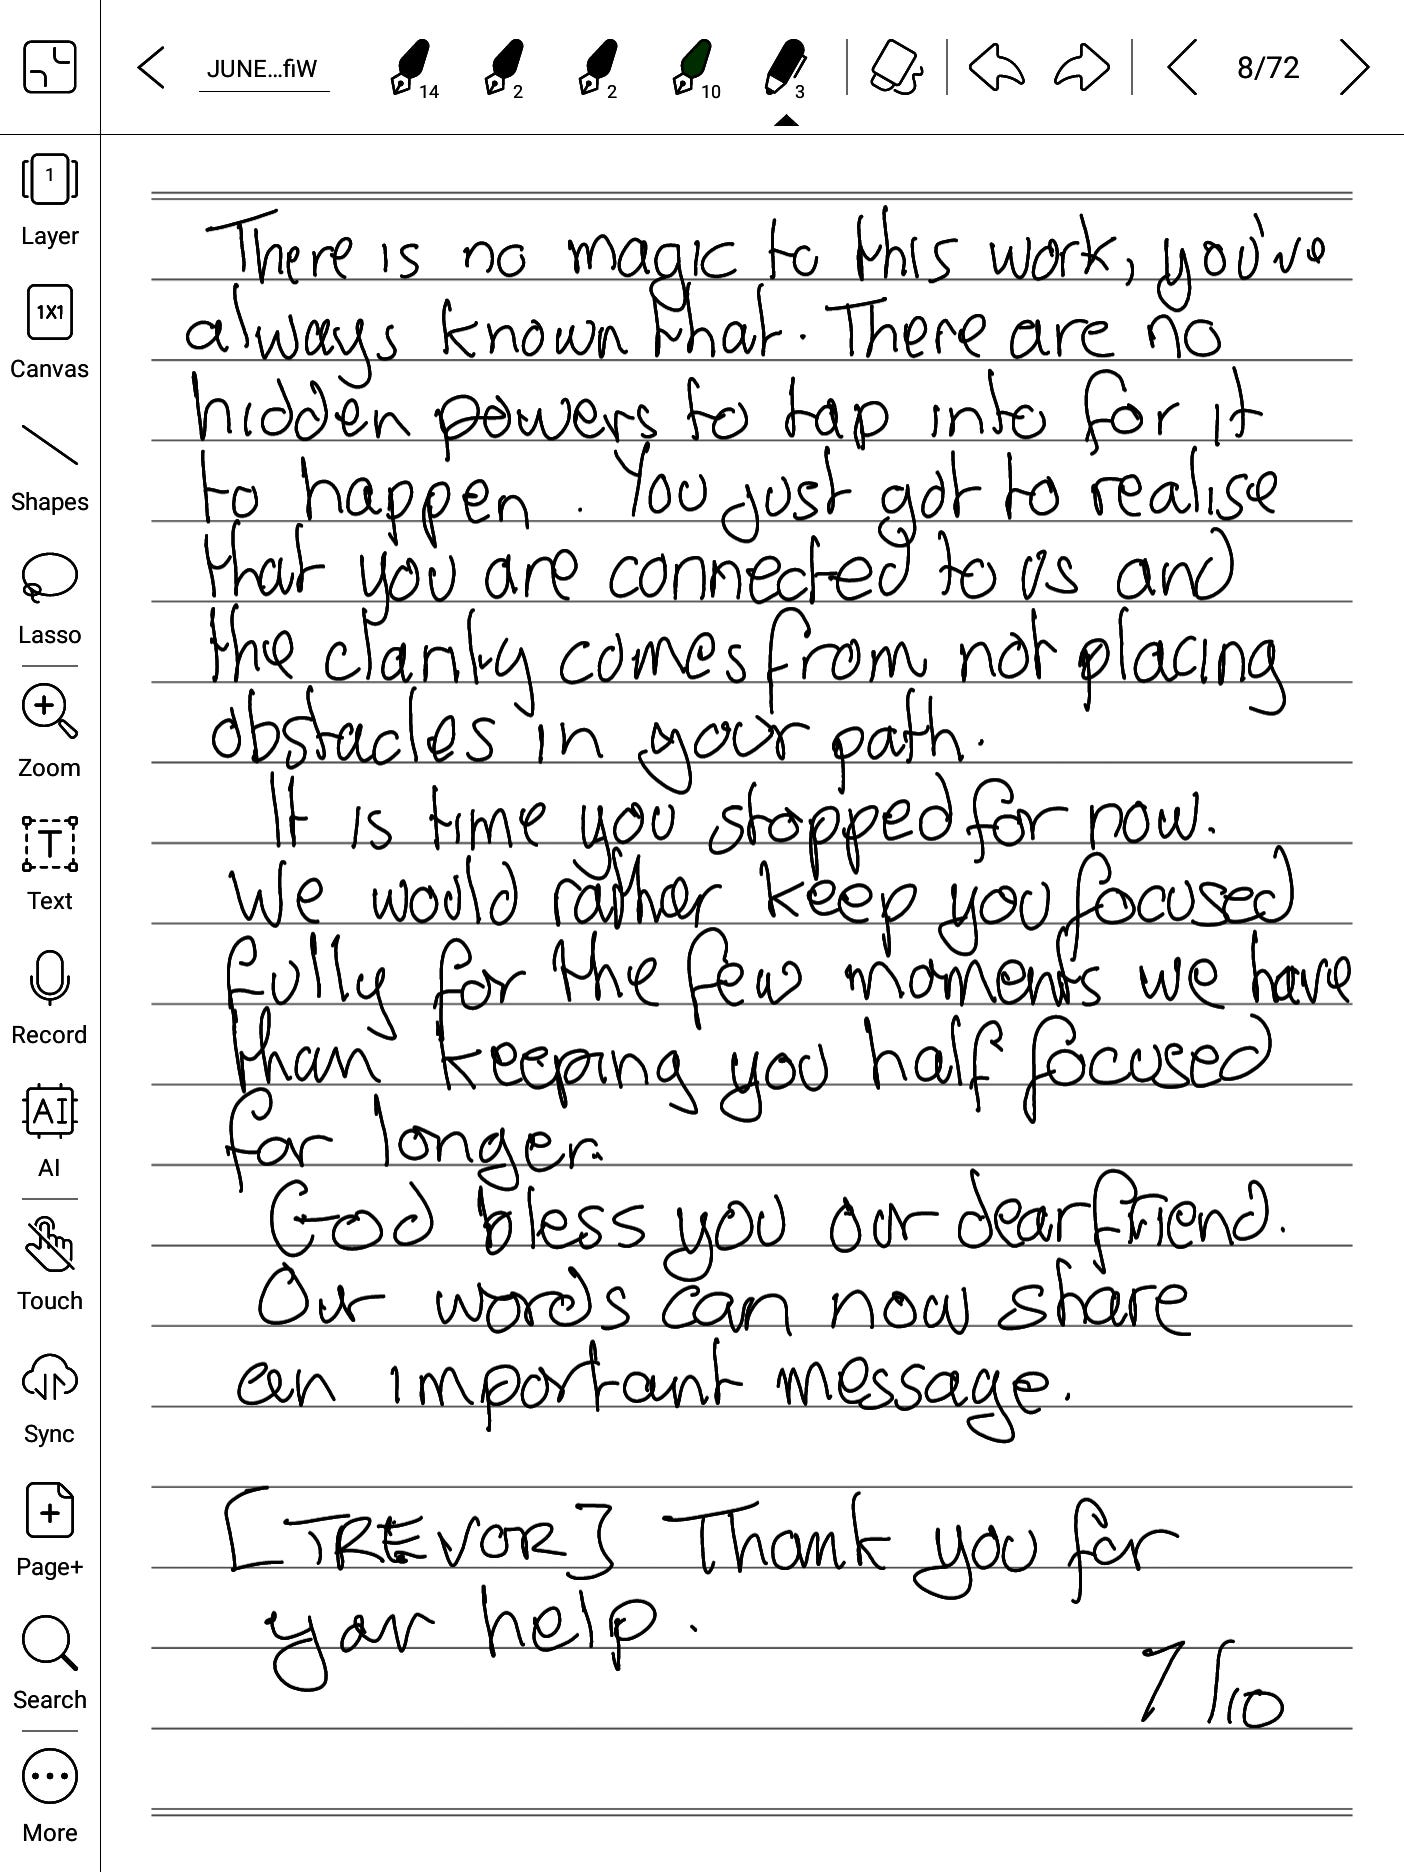 JUNE...fiW
14
2
2
10
3
8/72
1
Layer
1X1
Canvas
Shapes
Lasso
Zoom
T
Text
Record
AI
AI
Touch
Sync
Page+
Search
More
There is no magic to this work, you've
always known that. There are no
hidden powers to tap into for it
to happen. You just got to realise
that you are connected to us and
the clarity comes from not placing
obstacles in your path.
It is time you stopped for now.
We would rather keep you focused
fully for the few moments we have
than keeping you half focused
for longer.
God bless you our dear friend.
Our words can now share
an important message.
[TREVOR] Thank you for
your help.
7/10